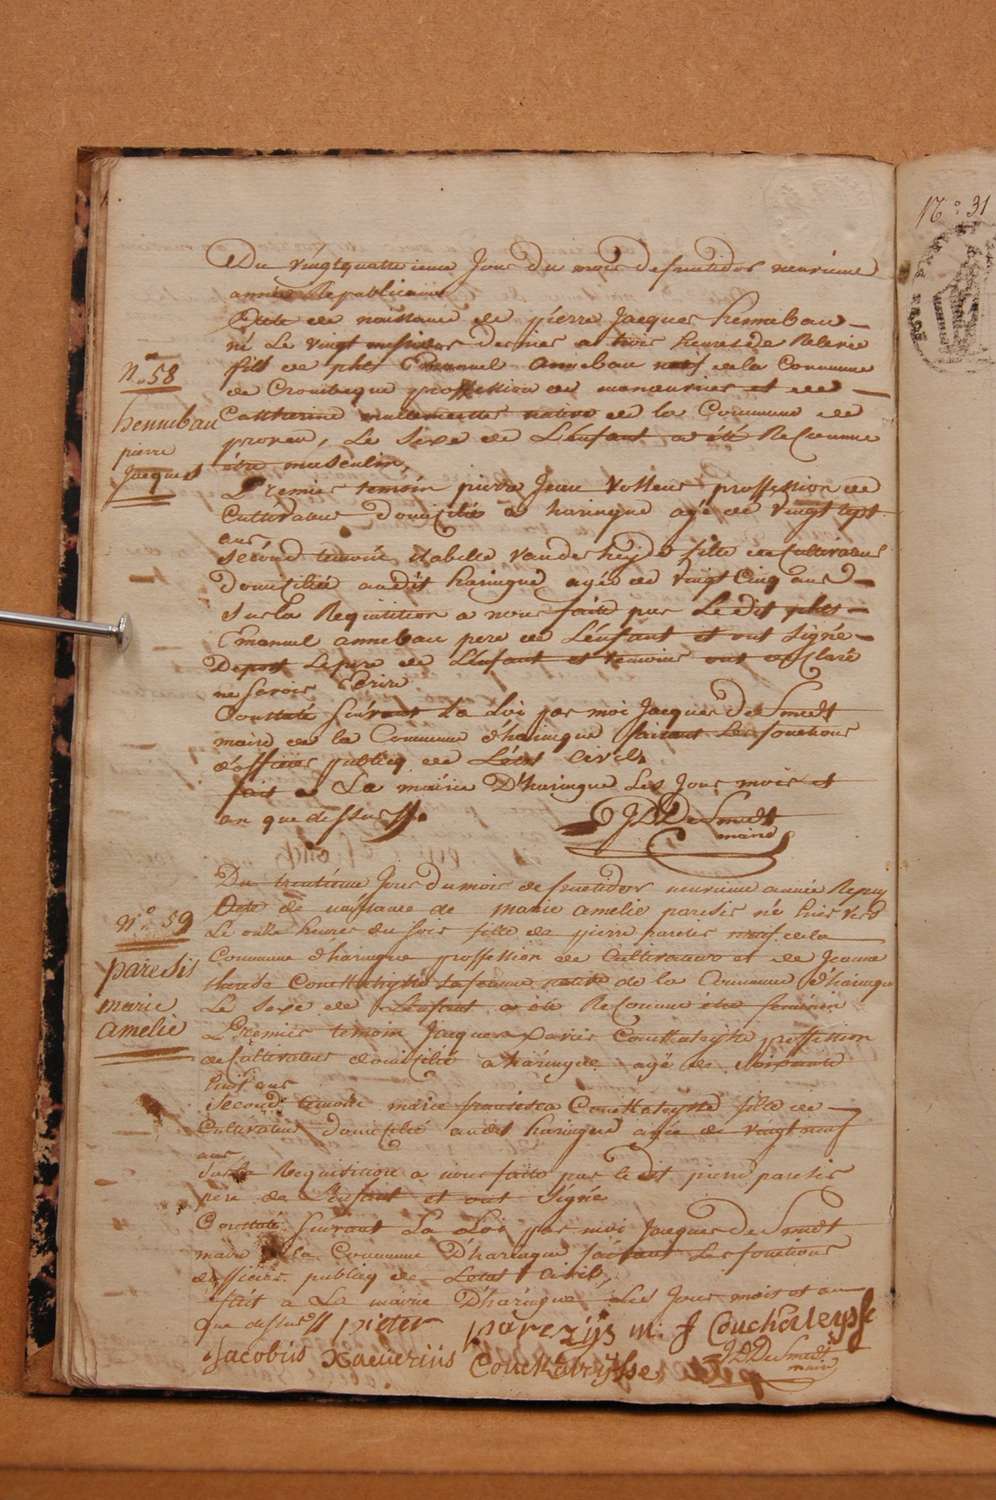 Du vingtquatrieme Jour du mois de fructidor neuvieme
année Republicaine
Acte de naissance de pierre Jacques hennebau
né Le vingt messidor dernier a trois heures de Relevée
fils de phle Emanuel annebau natif de la Commune
de Crombeque proffession de manouvrier et de
Catherine natve de la Commune de
proven, Le Sexe de L'enfant a été Reconnue
être masculin,
Premier temoin pierre Jean proffession de
Cultivateur domicilié a haringue agé de vingt sept
ans,
Second temoin isabelle vanderheyde fille de Cultivateur
domicilié audit haringue agée de vingt Cinq ans
Sur La Requisition a nous faite par Le dit phle
Emanuel annebau pere de L'enfant et ont Signé
Depost Le pere de L'enfant et temoins ont declaré
ne Savoir Ecrire
Constaté Suivant La Loi par moi Jacques De Smedt
maire de la Commune d'haringue faisant Les fonctions
d'officier publicq de L'état Civil,
fait a La mairie D'haringue Les Jour mois et
an que dessus
J D De Smedt
maire
N.º 58
hennebau
pierre
Jacques
Du trentieme Jour du mois de fructidor neuvieme année Repuq
Acte de naissance de marie amelie paresis né hier vers
Le onze heures du soir fille de pierre paresis natif de la
Commune d'haringue proffession de Cultivateur et de Jeanne
Couchateyste sa femme native de la Commune d'haringue
Le Sexe de L'enfant a été Reconnue être feminin
Premier temoin Jacques Xavier Couckuteyste proffession
de Cultivateur domicilié a haringue agé de Soixante
huit ans
Second temoin marie francisca Couckuteyste fille de
Cultivateur domicilié audit haringue agée de vingt neuf
ans,
Sur La Requisition a nous faite par le dit pierre paresis
pere de L'enfant et ont Signé
Constaté Suivant La Loi par moi Jacques De Smedt
maire de la Commune D'haringue faisant Les fonctions
d'officier publicq de L'état Civil,
fait a La mairie D'haringue Les Jour mois et an
que dessus pieter parezijs m: f Couchuteysse
Jacobus Xaverius Couckuteijsse
J D De Smedt
maire
N.º 59
paresis
marie
amelie
Nº 31